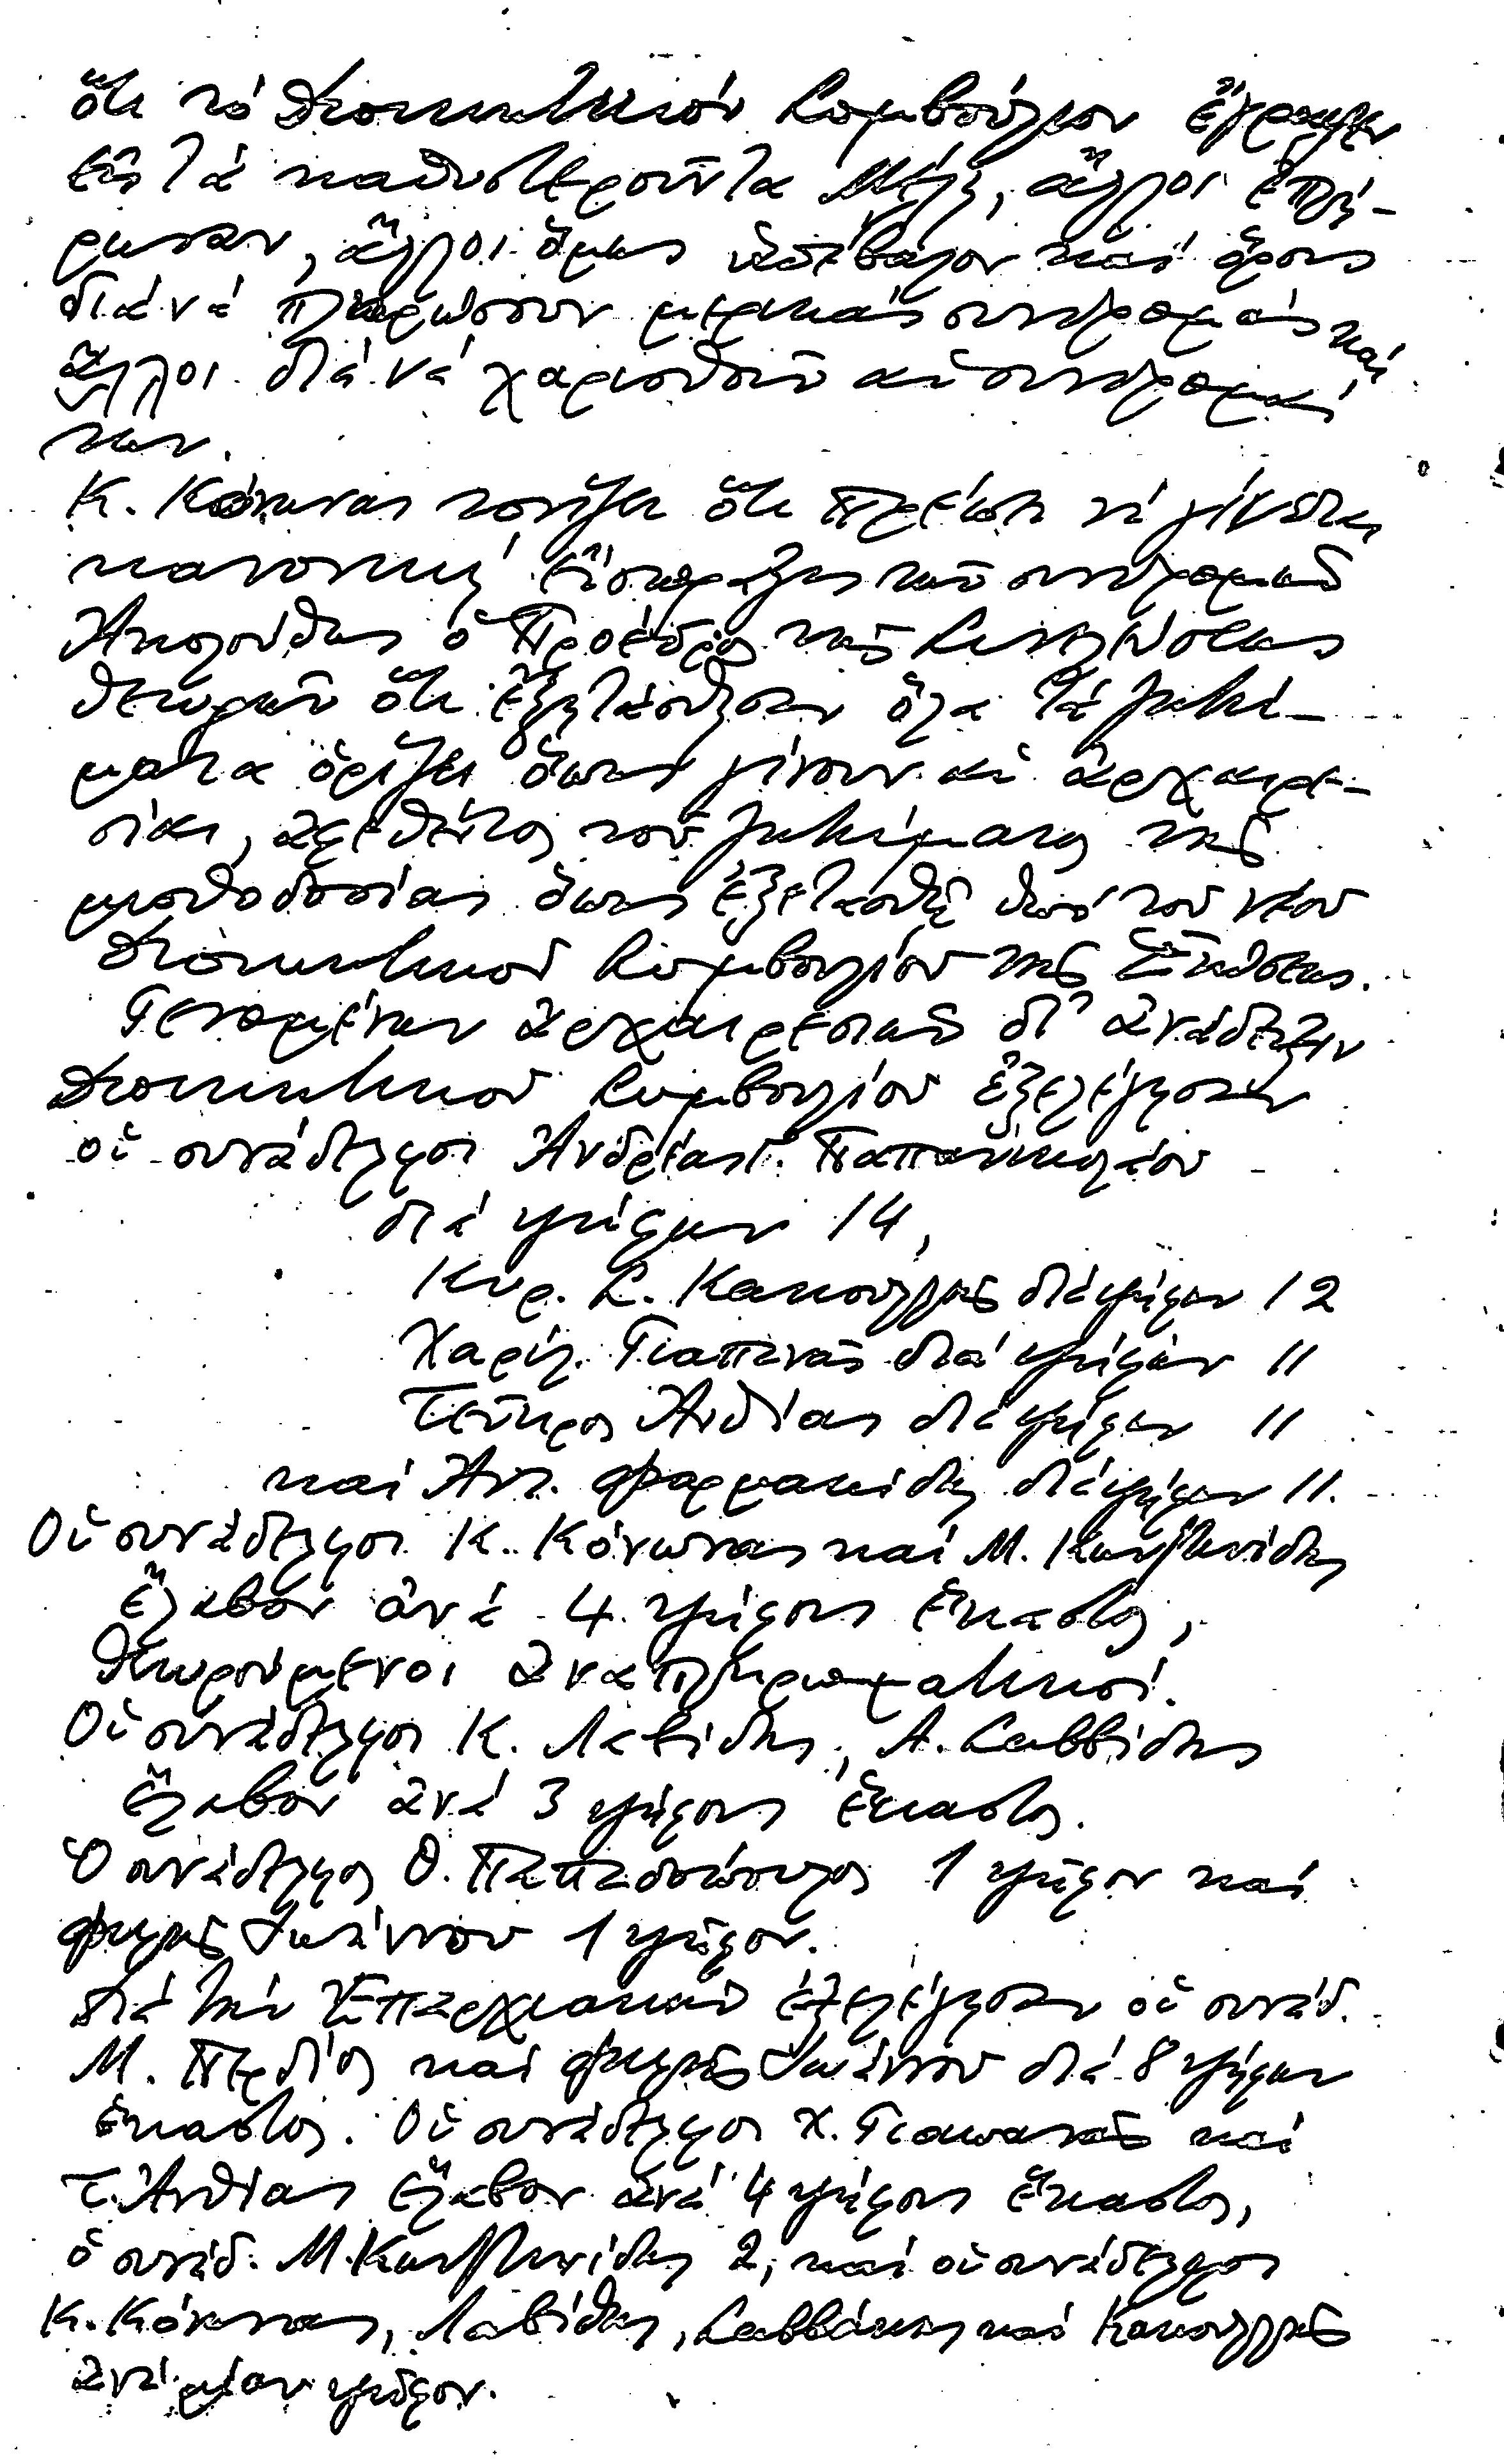 ὅτι τό Διοικητικόν Συμβούλιον ἔγραψεν
εἰς τά καθυστεροῦντα Μέλη, ἄλλοι ἐπλή-
ρωσαν, ἄλλοι ὅμως ὑπέβαλον καί ὅρους
διά νά πληρώσουν μερικάς συνδρομάς καί
ἄλλοι διά νά χαρισθοῦν αἱ συνδρομαί
των.
Κ. Κόνωνας τονίζει ὅτι πρέπει νά γίνεται
κανονική εἴσπραξις τῶν συνδρομῶν
Ἀκολούθως ὁ Πρόεδρος τῆς Συνελεύσεως
θεωρῶν ὅτι ἐξητάσθησαν ὅλα τά ζητή-
ματα ὁρίζει ὅπως γίνουν αἱ ἀρχαιρε-
σίαι, ἀφεθέντος τοῦ ζητήματος τῆς
μισθοδοσίας ὅπως ἐξετασθῇ ὑπό τοῦ νέου
Διοικητικοῦ Συμβουλίου τῆς Ἑνώσεως.
Γενομένων ἀρχαιρεσιῶν δι' ἀνάδειξιν
Διοικητικοῦ Συμβουλίου ἐξελέγησαν
οἱ συνάδελφοι Ἀνδρέας Γ. Παπανικολάου
διά ψήφων 14,
Κυρ. Σ. Κακουλλῆς διά ψήφων 12
Χαρίλ. Γιαπανᾶς διά ψήφων 11
Τεῦκρος Ἀνθίας διά ψήφων 11
καί Ἀντ. Φαρμακίδης διά ψήφων 11.
Οἱ συνάδελφοι Κ. Κόνωνας καί Μ. Κωνσταντινίδης
ἔλαβον ἀνά 4 ψήφους ἕκαστος,
θεωρούμενοι ἀναπληρωματικοί.
Οἱ συνάδελφοι Κ. Λαβίθης, Α. Σαββίδης
ἔλαβον ἀνά 3 ψήφους ἕκαστος.
Ὁ συνάδελφος Θ. Παπαδόπουλος 1 ψῆφον καί
Φειδίας Ἰωάννου 1 ψῆφον.
Διά τήν Ἐπαρχιακήν ἐξελέγησαν οἱ συνάδ.
Μ. Περδίος καί Φειδίας Ἰωάννου διά 8 ψήφων
ἕκαστος. Οἱ συνάδελφοι Χ. Γιαπανᾶς καί
Τ. Ἀνθίας ἔλαβον ἀνά 4 ψήφους ἕκαστος,
ὁ συνάδ. Μ. Κωνσταντινίδης 2, καί οἱ συνάδελφοι
Κ. Κόνωνας, Λαβίθης, Σαββάκης καί Κακουλλῆς
ἀνά μίαν ψῆφον.